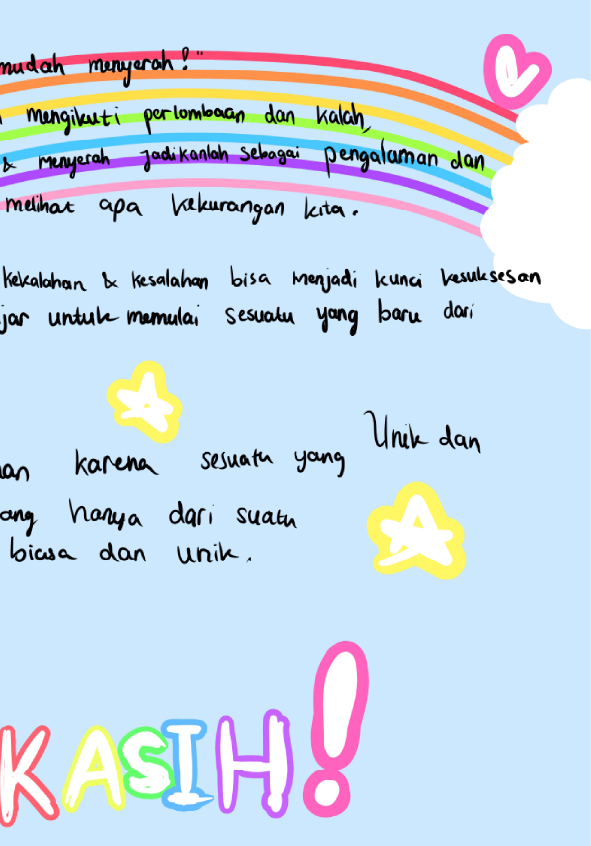 mudah menyerah!"
mengikuti perlombaan dan kalah,
& menyerah jadikanlah sebagai pengalaman dan
melihat apa kekurangan kita.
kekalahan & kesalahan bisa menjadi kunci kesuksesan
jar untuk memulai sesuatu yang baru dari
an karena sesuatu yang Unik dan
ang hanya dari suatu
biasa dan unik.
KASIH!